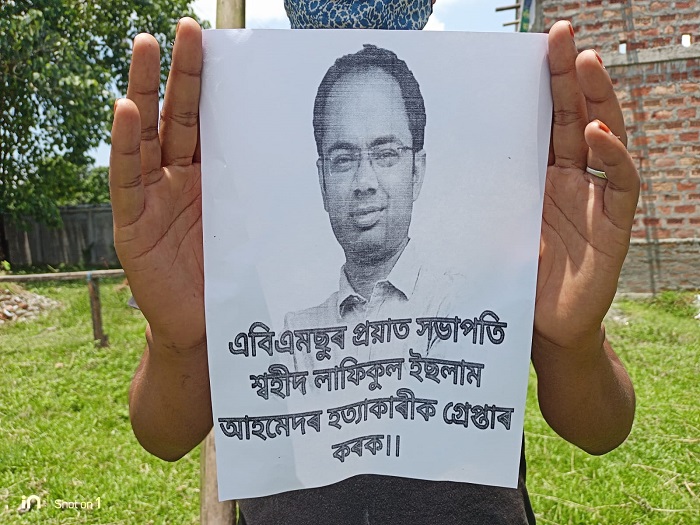 এবিএমছুৰ প্ৰয়াত সভাপতি
শ্বহীদ লাফিকুল ইছলাম
আহমেদৰ হত্যাকাৰীক গ্ৰেপ্তাৰ
কৰক।।
in Shot on 1